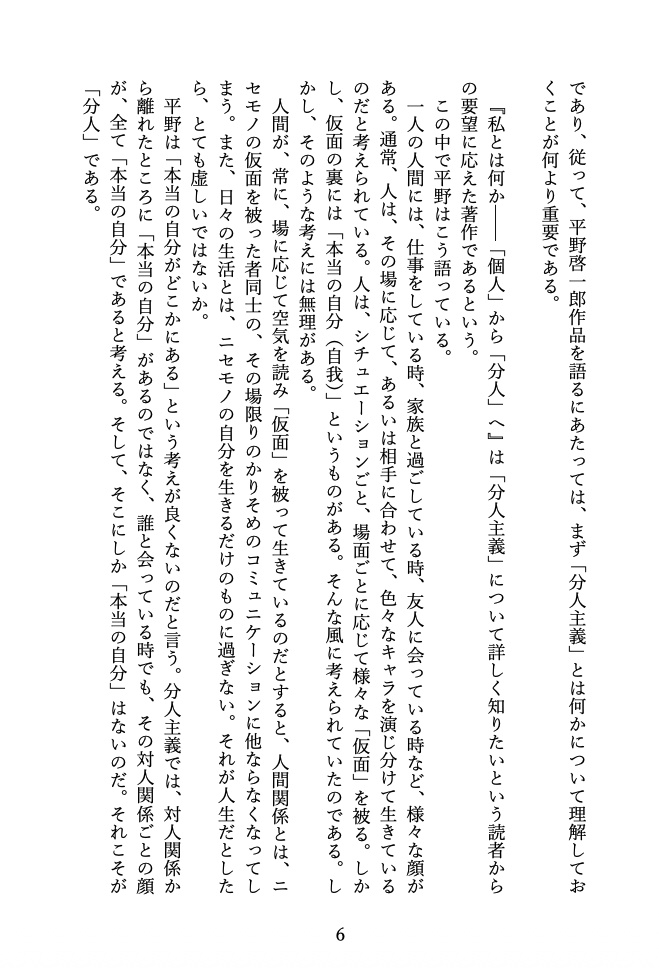 であり、従って、平野啓一郎作品を語るにあたっては、まず「分人主義」とは何かについて理解してお
くことが何より重要である。
『私とは何か――「個人」から「分人」へ』は「分人主義」について詳しく知りたいという読者から
の要望に応えた著作であるという。
この中で平野はこう語っている。
一人の人間には、仕事をしている時、家族と過ごしている時、友人に会っている時など、様々な顔が
ある。通常、人は、その場に応じて、あるいは相手に合わせて、色々なキャラを演じ分けて生きている
のだと考えられている。人は、シチュエーションごと、場面ごとに応じて様々な「仮面」を被る。しか
し、仮面の裏には「本当の自分（自我）」というものがある。そんな風に考えられていたのである。し
かし、そのような考えには無理がある。
人間が、常に、場に応じて空気を読み「仮面」を被って生きているのだとすると、人間関係とは、ニ
セモノの仮面を被った者同士の、その場限りのかりそめのコミュニケーションに他ならなくなってし
まう。また、日々の生活とは、ニセモノの自分を生きるだけのものに過ぎない。それが人生だとした
ら、とても虚しいではないか。
平野は「本当の自分がどこかにある」という考えが良くないのだと言う。分人主義では、対人関係か
ら離れたところに「本当の自分」があるのではなく、誰と会っている時でも、その対人関係ごとの顔
が、全て「本当の自分」であると考える。そして、そこにしか「本当の自分」はないのだ。それこそが
「分人」である。
6